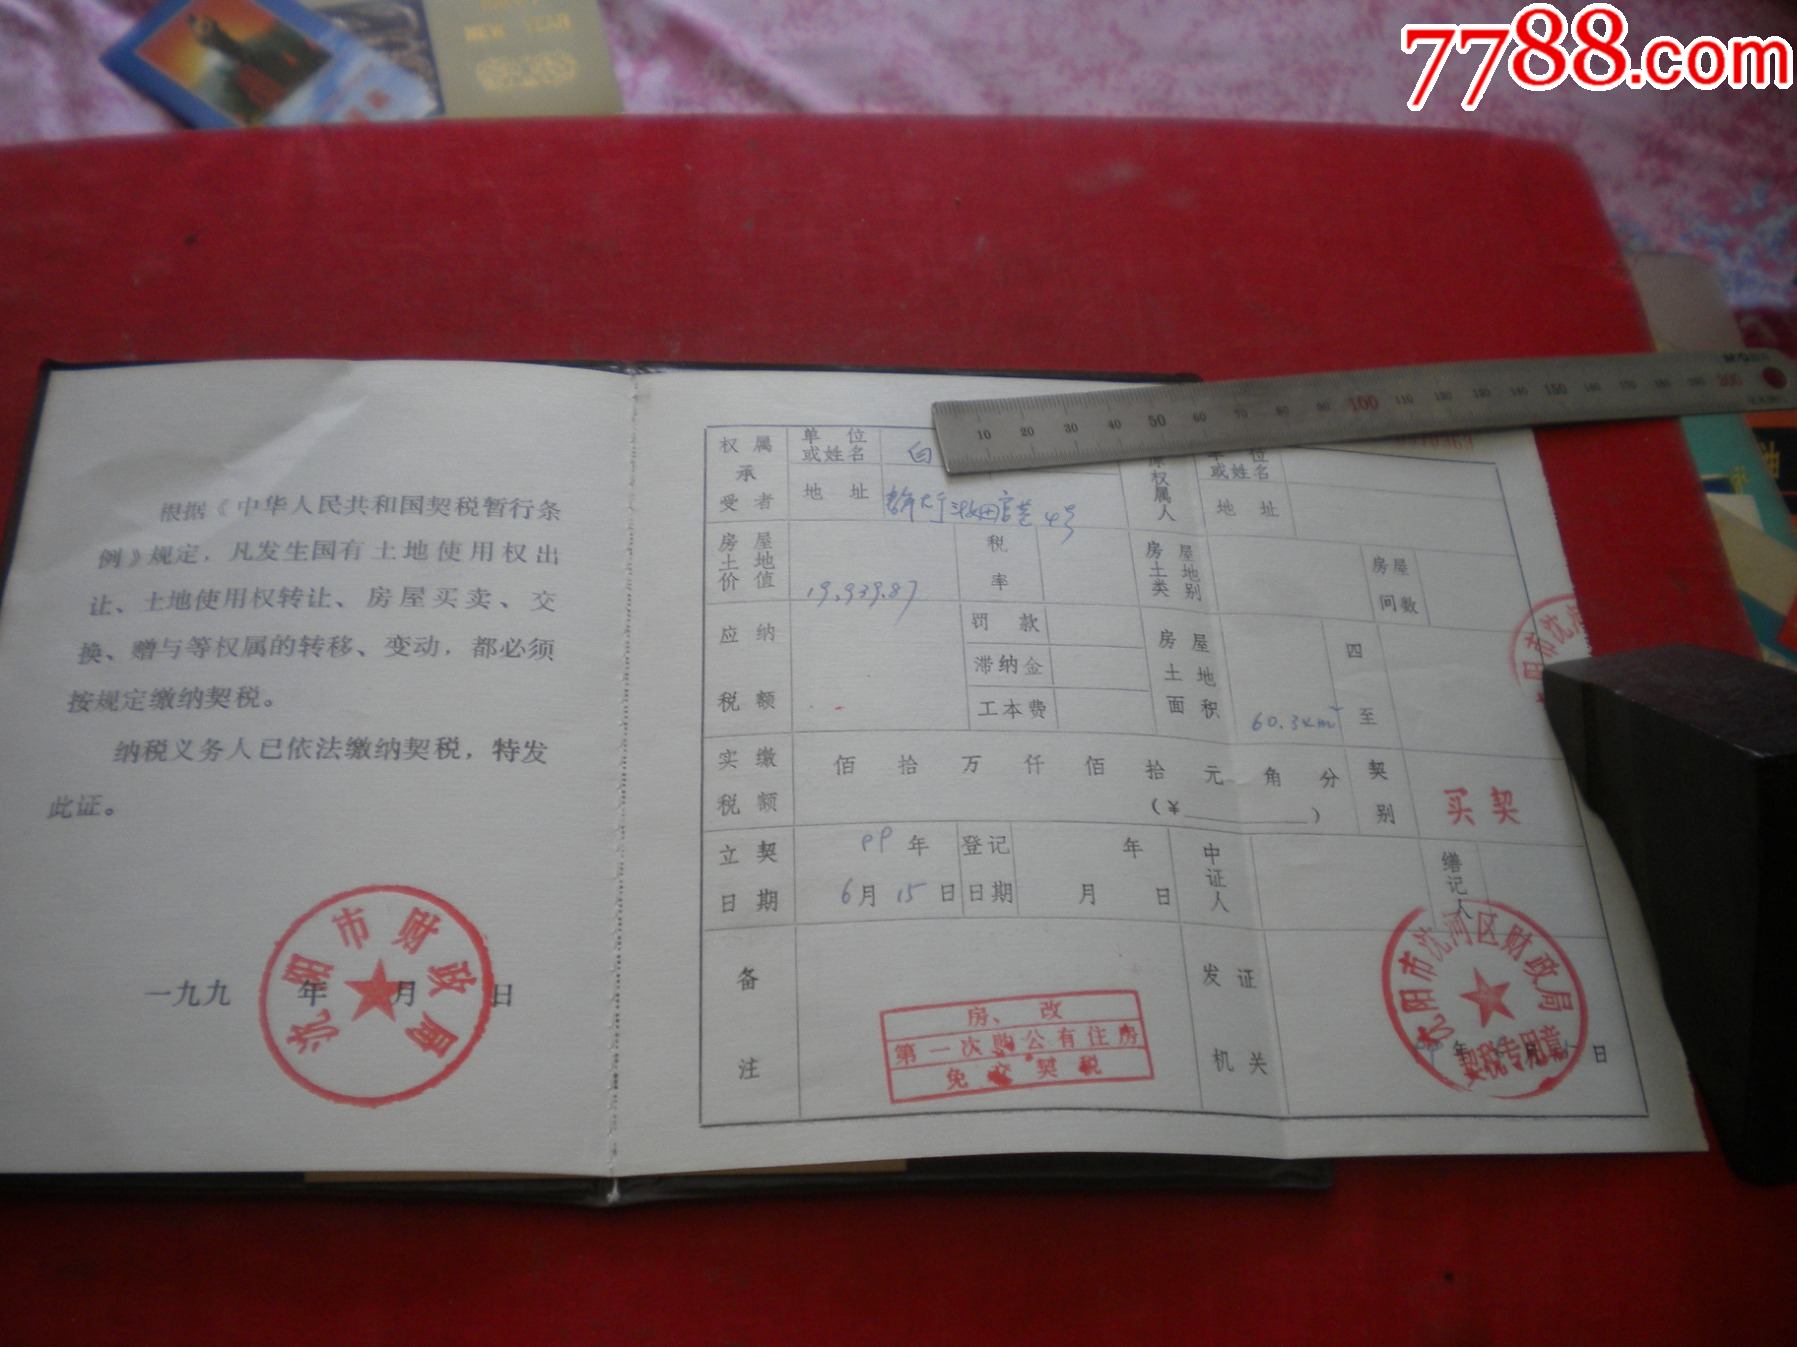 NEW YEAR
7788.com
根据《中华人民共和国契税暂行条
例》规定，凡发生国有土地使用权出
让、土地使用权转让、房屋买卖、交
换、赠与等权属的转移、变动，都必须
按规定缴纳契税。
纳税义务人已依法缴纳契税，特发
此证。
一九九 年 月 日
沈阳市财政局
10 20 30 40 50 60 70 80 90 100 110 120 130 140 150 160 170 180 190 200
权属承受者
单位或姓名
白
地址
4号
原权属人
单位或姓名
地址
房屋土地价值
19,939.87
税率
房屋土地类别
房屋间数
应纳税额
罚款
滞纳金
工本费
房屋土地面积
60.3
四至
实缴税额
佰 拾 万 仟 佰 拾 元 角 分
（¥ ）
契别
买契
立契日期
99年
6月15日
登记日期
年
月 日
中证人
缮记人
备注
房、改
第一次购公有住房
免交契税
发证机关
年 月 日
沈阳市沈河区财政局
契税专用章
阳市沈